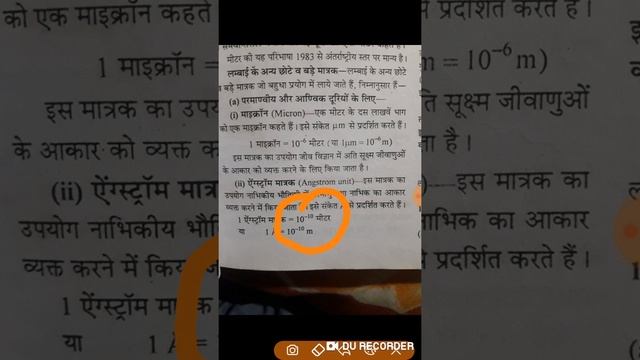 मीटर की यह परिभाषा 1983 से अंतर्राष्ट्रीय स्तर पर मान्य है।
लम्बाई के अन्य छोटे व बड़े मात्रक—लम्बाई के अन्य छोटे
व बड़े मात्रक जो बहुधा प्रयोग में लाये जाते हैं, निम्नानुसार हैं—
(a) परमाण्वीय और आण्विक दूरियों के लिए—
(i) माइक्रॉन (Micron)—एक मीटर के दस लाखवें भाग
को एक माइक्रॉन कहते हैं। इसे संकेत μm से प्रदर्शित करते हैं।
1 माइक्रॉन = 10⁻⁶ मीटर (या 1μm = 10⁻⁶ m)
इस मात्रक का उपयोग जीव विज्ञान में अति सूक्ष्म जीवाणुओं
के आकार को व्यक्त करने के लिए किया जाता है।
(ii) ऐंग्स्ट्रॉम मात्रक (Angstrom unit)—इस मात्रक का
उपयोग नाभिकीय भौतिकी में नाभिक का आकार
व्यक्त करने में किया जाता है। इसे संकेत से प्रदर्शित करते हैं।
1 ऐंग्स्ट्रॉम मात्रक = 10⁻¹⁰ मीटर
या 1 Å = 10⁻¹⁰ m
को एक माइक्रॉन कहते
प्रदर्शित करते हैं।
1 माइक्रॉन =
= 10⁻⁶ m)
इस मात्रक का उपय
ति सूक्ष्म जीवाणुओं
के आकार को व्यक्त क
ता है।
(ii) ऐंग्स्ट्रॉम मात्रक
—इस मात्रक का
उपयोग नाभिकीय भौति
भिक का आकार
व्यक्त करने में किय
प्रदर्शित करते हैं।
1 ऐंग्स्ट्रॉम मा
या 1 Å =
DU RECORDER